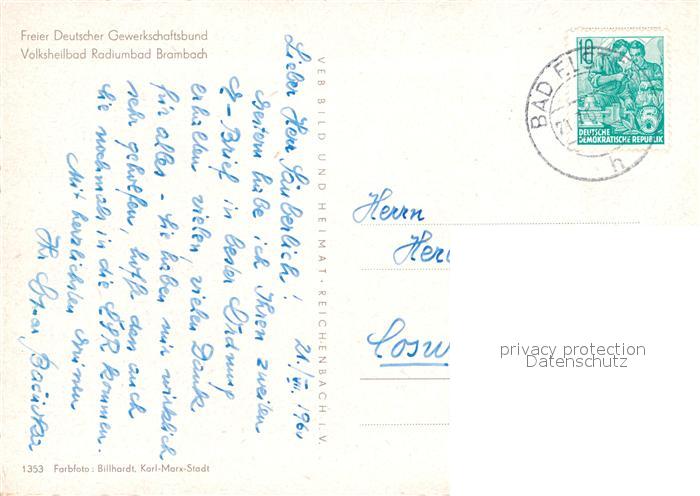 Freier Deutscher Gewerkschaftsbund
Volksheilbad Radiumbad Brambach
21./VII. 1960
Lieber Herr Säuberlich!
Gestern habe ich Ihren zweiten
E-Brief in bester Ordnung
erhalten, vielen, vielen Dank
für alles - Sie haben mir wirklich
sehr geholfen, hoffe dan auch
Sie nochmals in die ČSR kommen.
Mit herzlichsten Grüssen
Ihr
VEB BILD UND HEIMAT · REICHENBACH I. V.
10
5
DEUTSCHE
DEMOKRATISCHE REPUBLIK
BAD ELST
21
h
Herrn
Her
Cosw
privacy protection
Datenschutz
1353 Farbfoto: Billhardt, Karl-Marx-Stadt